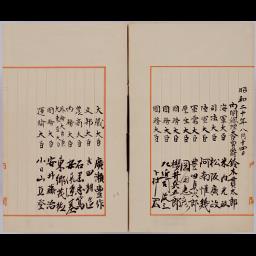 昭和二十年八月十四日
内閣總理大臣男爵 鈴木貫太郎
海軍大臣 米内光政
司法大臣 松阪廣政
陸軍大臣 阿南惟幾
軍需大臣 豊田貞次郎
厚生大臣 岡田忠彦
國務大臣 櫻井兵五郎
國務大臣 左近司政三
國務大臣 下村宏
大藏大臣 廣瀬豊作
文部大臣 太田耕造
農商大臣 石黒忠篤
内務大臣 安倍源基
外務大臣兼
大東亞大臣 東郷茂徳
國務大臣 安井藤治
運輸大臣 小日山直登